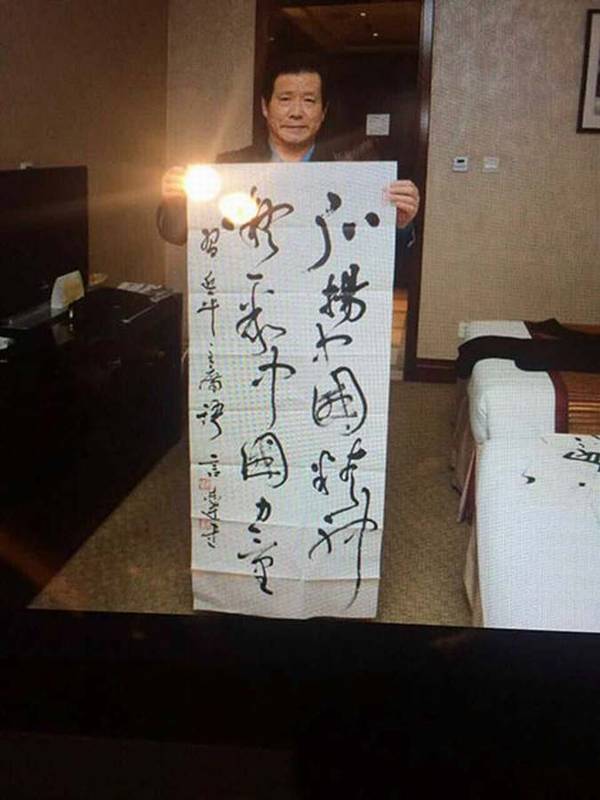 弘揚中國精神
凝聚中國力量
習近平主席語 言恭達